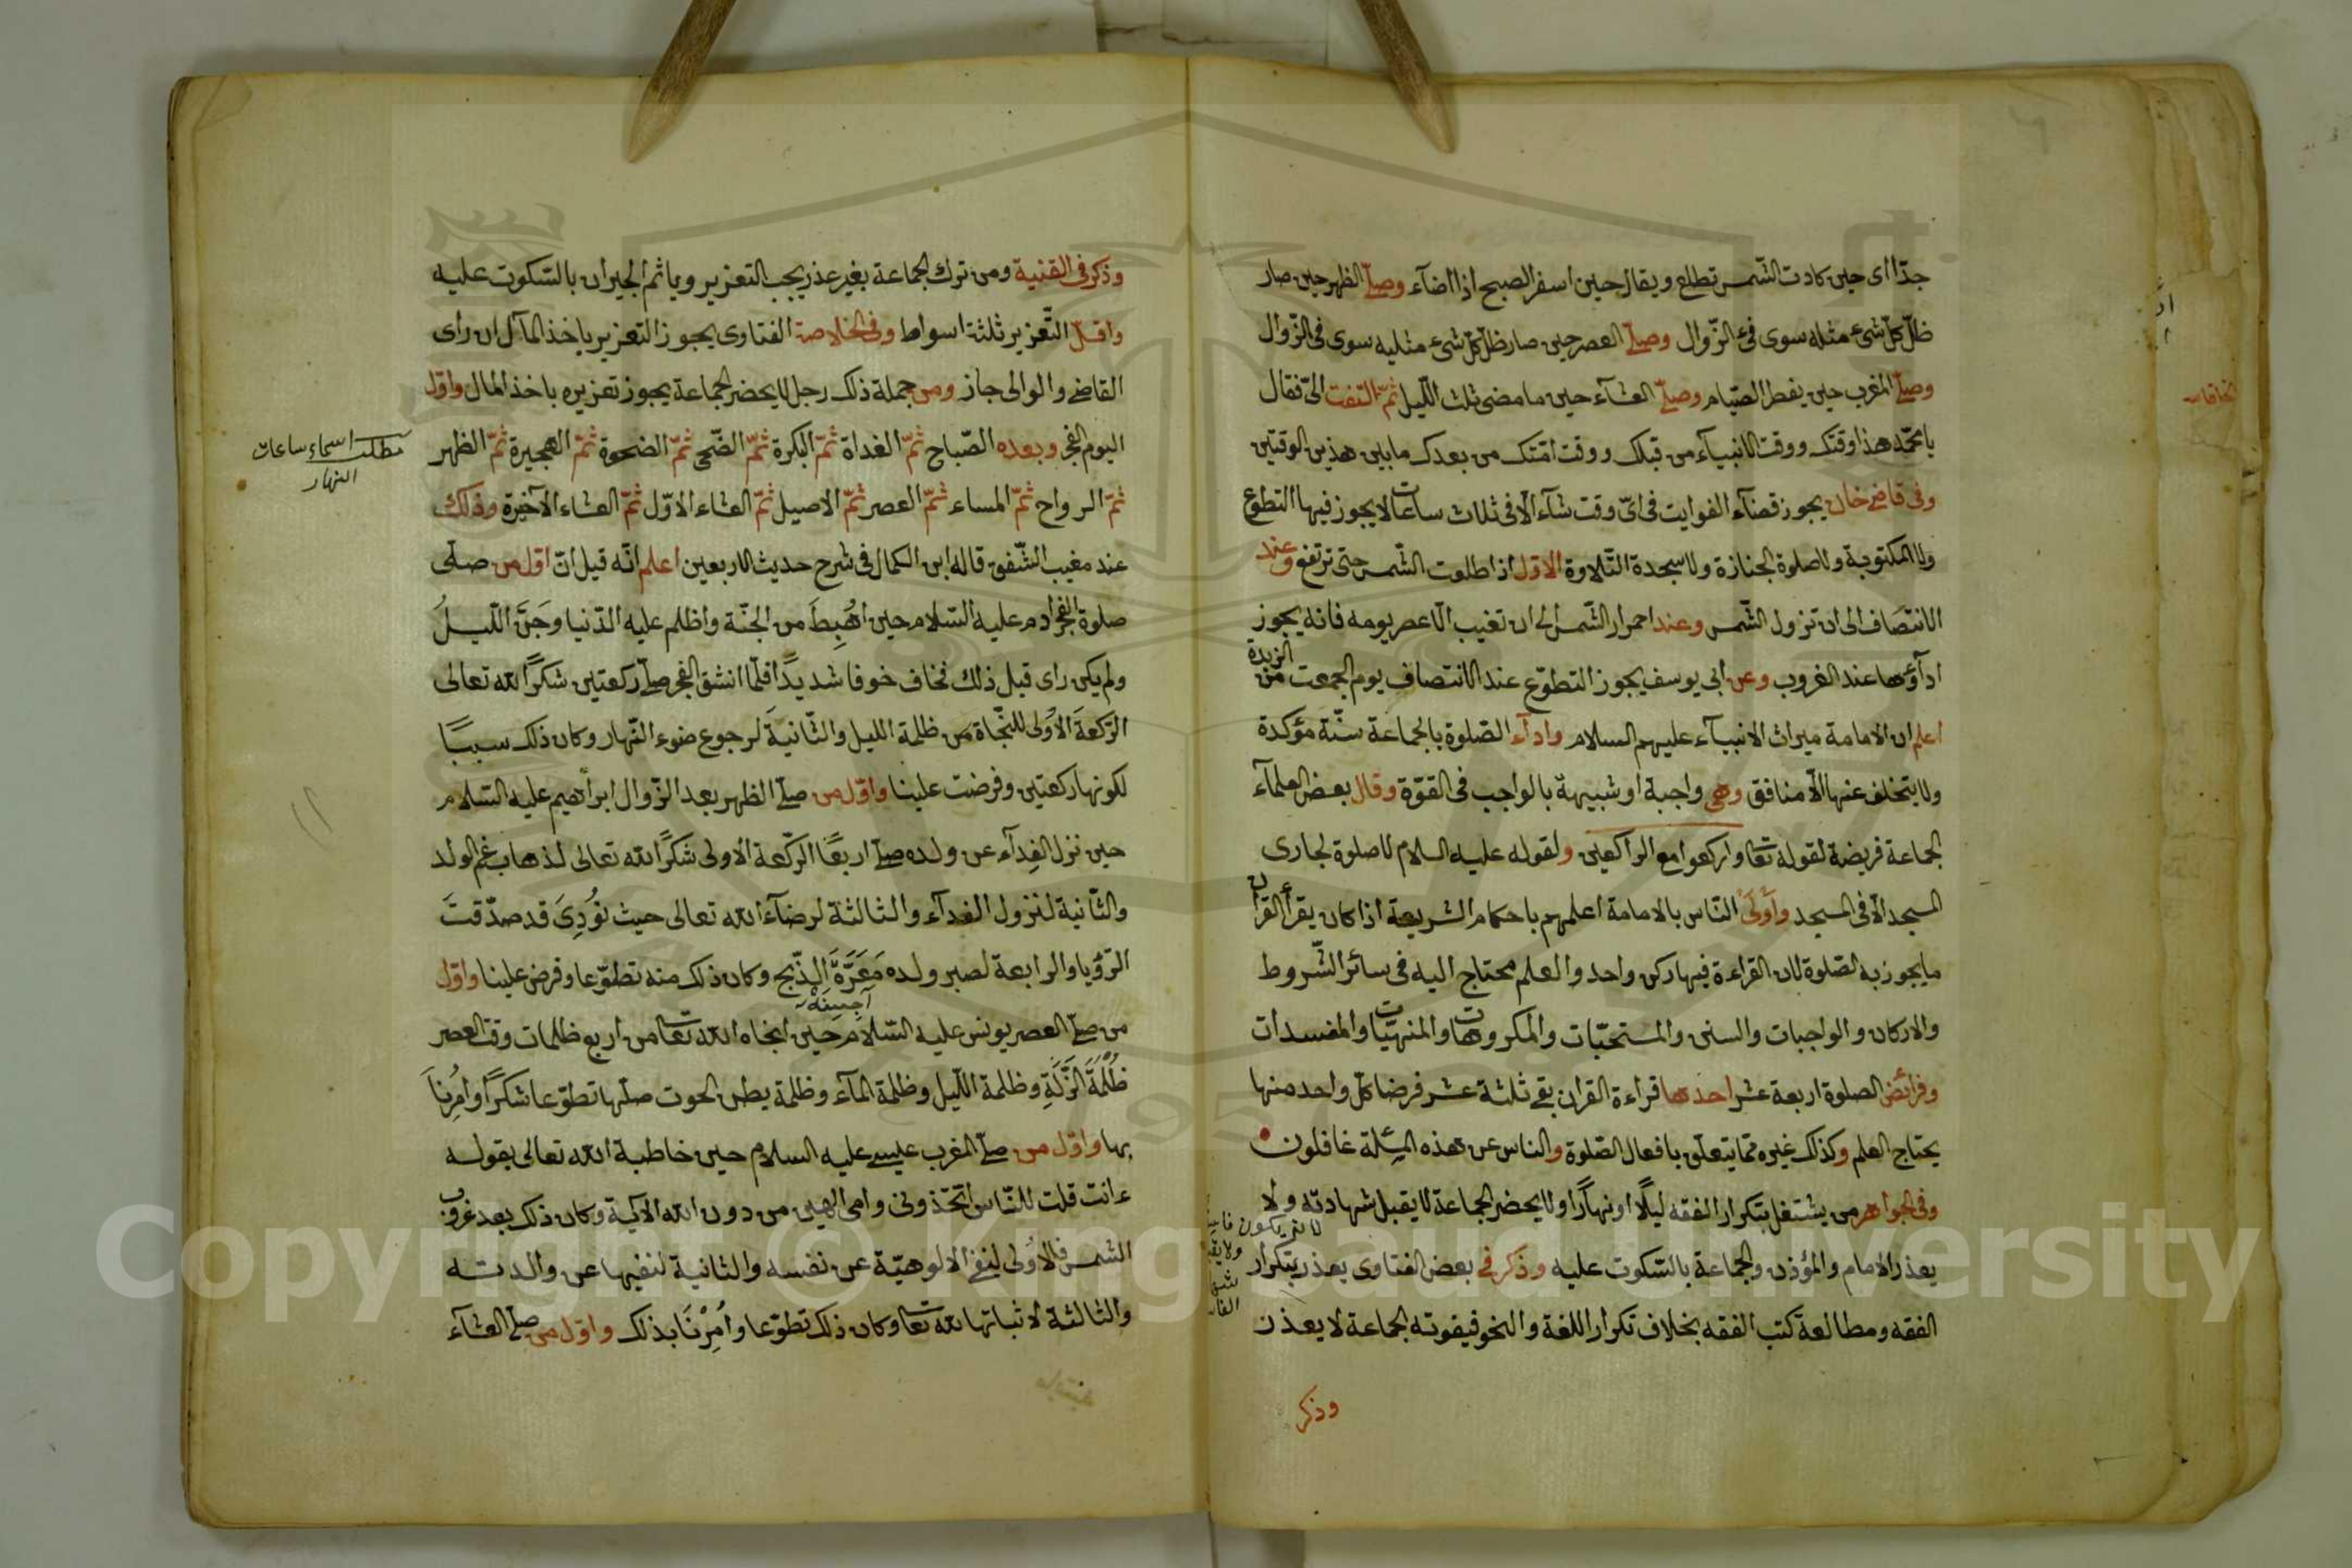 جدّا اى حين كادت الشّمس تطلع ويقال حين اسفر الصبح اذا اضآء وصلّے الظهر حين صار
ظلّ كلّ شئ مثله سوى فئ الزّوال وصلّے العصر حين صار ظلّ كلّ شئ مثليه سوى فى الزوال
وصلّے المغرب حين يفطر الصّيام وصلّے العشآء حين ما مضى ثلث اللّيل ثمّ التفت الىّ فقال
يا محمّد هذا وقتك ووقت الانبيآء من قبلك ووقت امّتك من بعدك ما بين هذين الوقتين
وفى قاضے خان يجوز قضآء الفوايت فى اىّ وقت شآء الّا فى ثلاث ساعات لا يجوز فيها التطوع
ولا المكتوبة ولا صلوة الجنازة ولا سجدة التّلاوة الاوّل اذا طلعت الشّمس حتى ترتفع وعند
الانتصاف الى ان تزول الشّمس وعند احمرار الشّمس الى ان تغيب الّا عصر يومه فانه يجوز
ادآؤها عند الغروب وعن ابى يوسف يجوز التطوّع عند الانتصاف يوم الجمعت من الزبدة
اعلم ان الامامة ميراث الانبيآء عليهم السلام وادآء الصّلوة بالجماعة سنّة مؤكدة
ولا يتخلف عنها الّا منافق وهى واجبة او شبيهة بالواجب فى القوّة وقال بعض العلمآء
الجماعة فريضة لقوله تعا واركعوا مع الراكعين ولقوله عليه السلام لا صلوة لجارى
المسجد الّا فى المسجد واَولىَ النّاس بالامامة اعلمهم باحكام الشريعة اذا كان يقرأ القرأن
ما يجوز به الصّلوة لان القراءة فيها ركن واحد والعلم محتاج اليه فى سائر الشّروط
والاركان والواجبات والسنن والمستحبّات والمكروهات والمنهيّات والمفسدات
وفرائض الصلوة اربعة عشر احدها قراءة القران بقے ثلثة عشر فرضا كلّ واحد منها
يحتاج العلم وكذلك غيره ممّا يتعلّق بافعال الصّلوة والناس عن هذه المسئلة غافلون
وفى الجواهر من يشتغل بتكرار الفقه ليلًا او نهارًا ولا يحضر الجماعة لا يقبل شهادته ولا
يعذر الامام والمؤذن والجماعة بالسّكوت عليه وذكر فى بعض الفتاوى يعذر بتكرار
الفقه ومطالعة كتب الفقه بخلاف تكرار اللغة والنحو فيفوته الجماعة لا يعذر
وذكر
وذكر فى القنية ومن ترك الجماعة بغير عذر يجب التعزير ويا ثم الجيران بالسّكوت عليه
واقلّ التّعزير ثلثة اسواط وفى الخلاصة الفتاوى يجوز التعزير باخذ المآل ان راى
القاضے والوالى جاز ومن جملة ذلك رجل لا يحضر الجماعة يجوز تعزيره باخذ المال واوّل
اليوم الفجر وبعده الصّباح ثمّ الغداة ثمّ البكرة ثمّ الضّحى ثمّ الضحوة ثمّ الهجيرة ثمّ الظهر
ثمّ الرواح ثمّ المساء ثمّ العصر ثمّ الاصيل ثمّ العشاء الاوّل ثمّ العشاء الآخيرة وذلك
عند مغيب الشّفق قاله ابن الكمال فى شرح حديث الاربعين اعلم انّه قيل انّ اوّل من صلّى
صلوة الفجر ادم عليه السّلام حين اُهْبِطَ من الجنّة واظلم عليه الدّنيا وجَنَّ اللّيلُ
ولم يكن راى قبل ذلك فخاف خوفا شديدًا فلمّا انشق الفجر صلّے ركعتين شكرًا لله تعالى
الرّكعةَ الاُولى للنّجاة من ظلمة الليل والثّانيةَ لرجوع ضوء النّهار وكان ذلك سببًا
لكونها ركعتين وفرضت علينا واوّل من صلّے الظهر بعد الزّوال ابراهيم عليه السّلام
حين نزل الفِدآء عن ولده صلّے اربعًا الرّكعة الاولى شكرًا لله تعالى لذهاب غم الولد
والثّانية لنزول الفدآء والثالثة لرضآء الله تعالى حيث نوُدِىَ قد صدّقتَ
الرّؤيا والرابعة لصبر ولده مَعَرَّةَ الذّبح وكان ذلك منه تطوّعا وفرض علينا واوّل
من صلّے العصر يونس عليه السّلام حين انجاه الله تعا من اربع ظلمات وقت العصر
ظُلْمَةَ الزّلَّةِ وظلمة اللّيل وظلمة المآء وظلمة بطن الحوت صلّيها تطوّعا شكرًا واُمِرْناَ
بها واوّل من صلّے المغرب عيسے عليه السلام حين خاطبة الله تعالى بقوله
ءانت قلت للنّاس اتّخذونى وامى الهين من دون الله الآية وكان ذلك بعد غروب
الشمس فالاُولى لنفے الالوهيّة عن نفسه والثانية لنفيها عن والدته
والثالثة لاثباتها لله تعا وكان ذلك تطوّعا واُمِرْنَا بذلك واوّل من صلّے العشآء
مطلب اسماء ساعات
النهار
Copyright © King Saud University